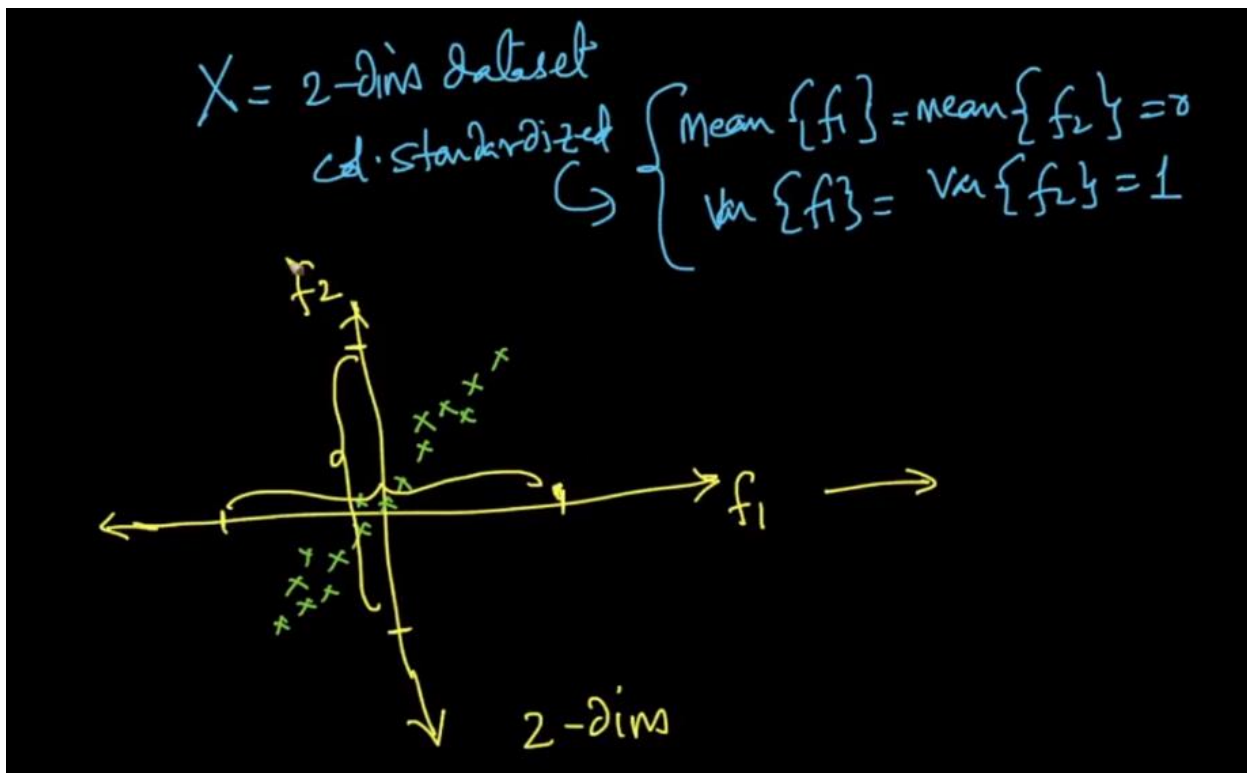 X = 2-dim dataset
col. standardized { mean {f1} = mean {f2} = 0
var {f1} = var {f2} = 1
f2
f1
2-dims